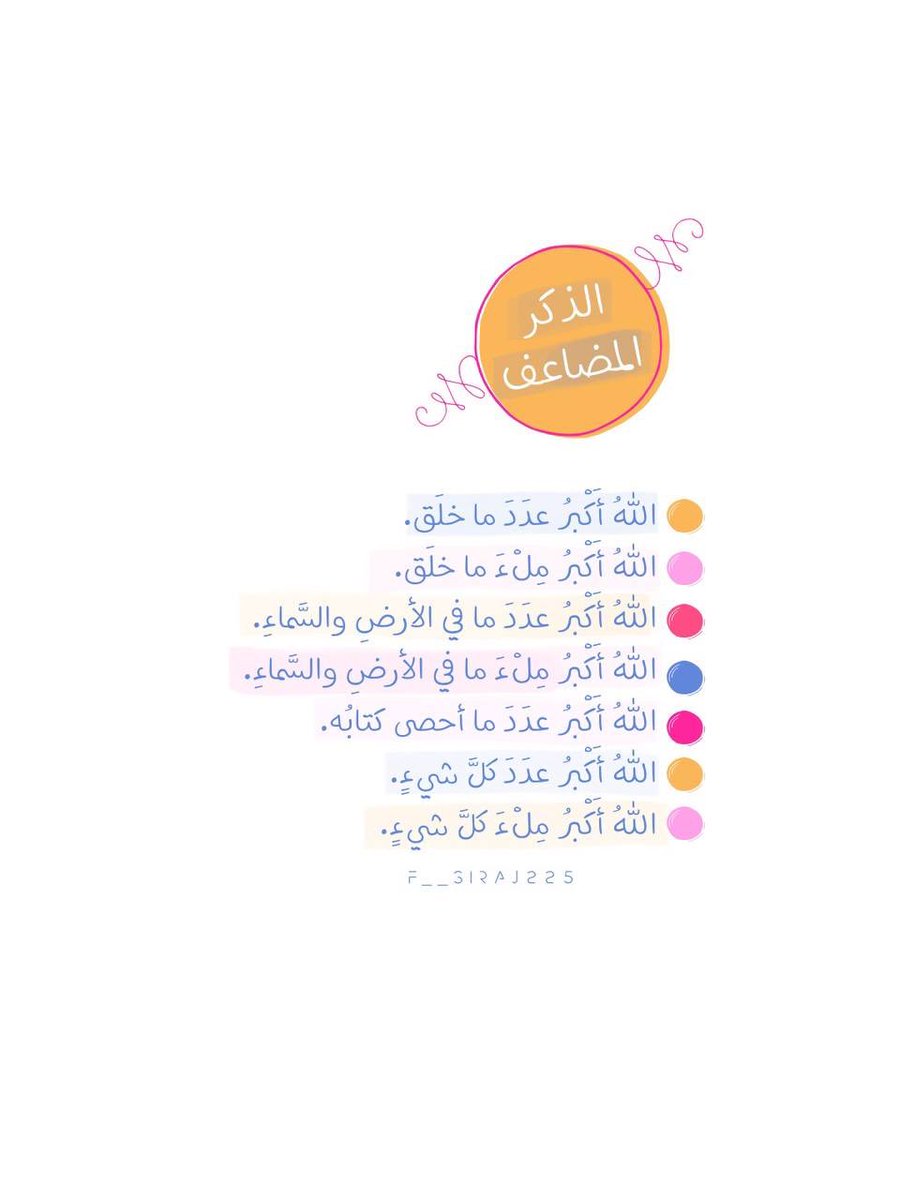 الذكر
المضاعف
اللهُ أَكْبرُ عدَدَ ما خلَق.
اللهُ أَكْبرُ مِلْءَ ما خلَق.
اللهُ أَكْبرُ عدَدَ ما في الأرضِ والسَّماءِ.
اللهُ أَكْبرُ مِلْءَ ما في الأرضِ والسَّماءِ.
اللهُ أَكْبرُ عدَدَ ما أحصى كتابُه.
اللهُ أَكْبرُ عدَدَ كلَّ شيءٍ.
اللهُ أَكْبرُ مِلْءَ كلَّ شيءٍ.
F__SIRAJ225